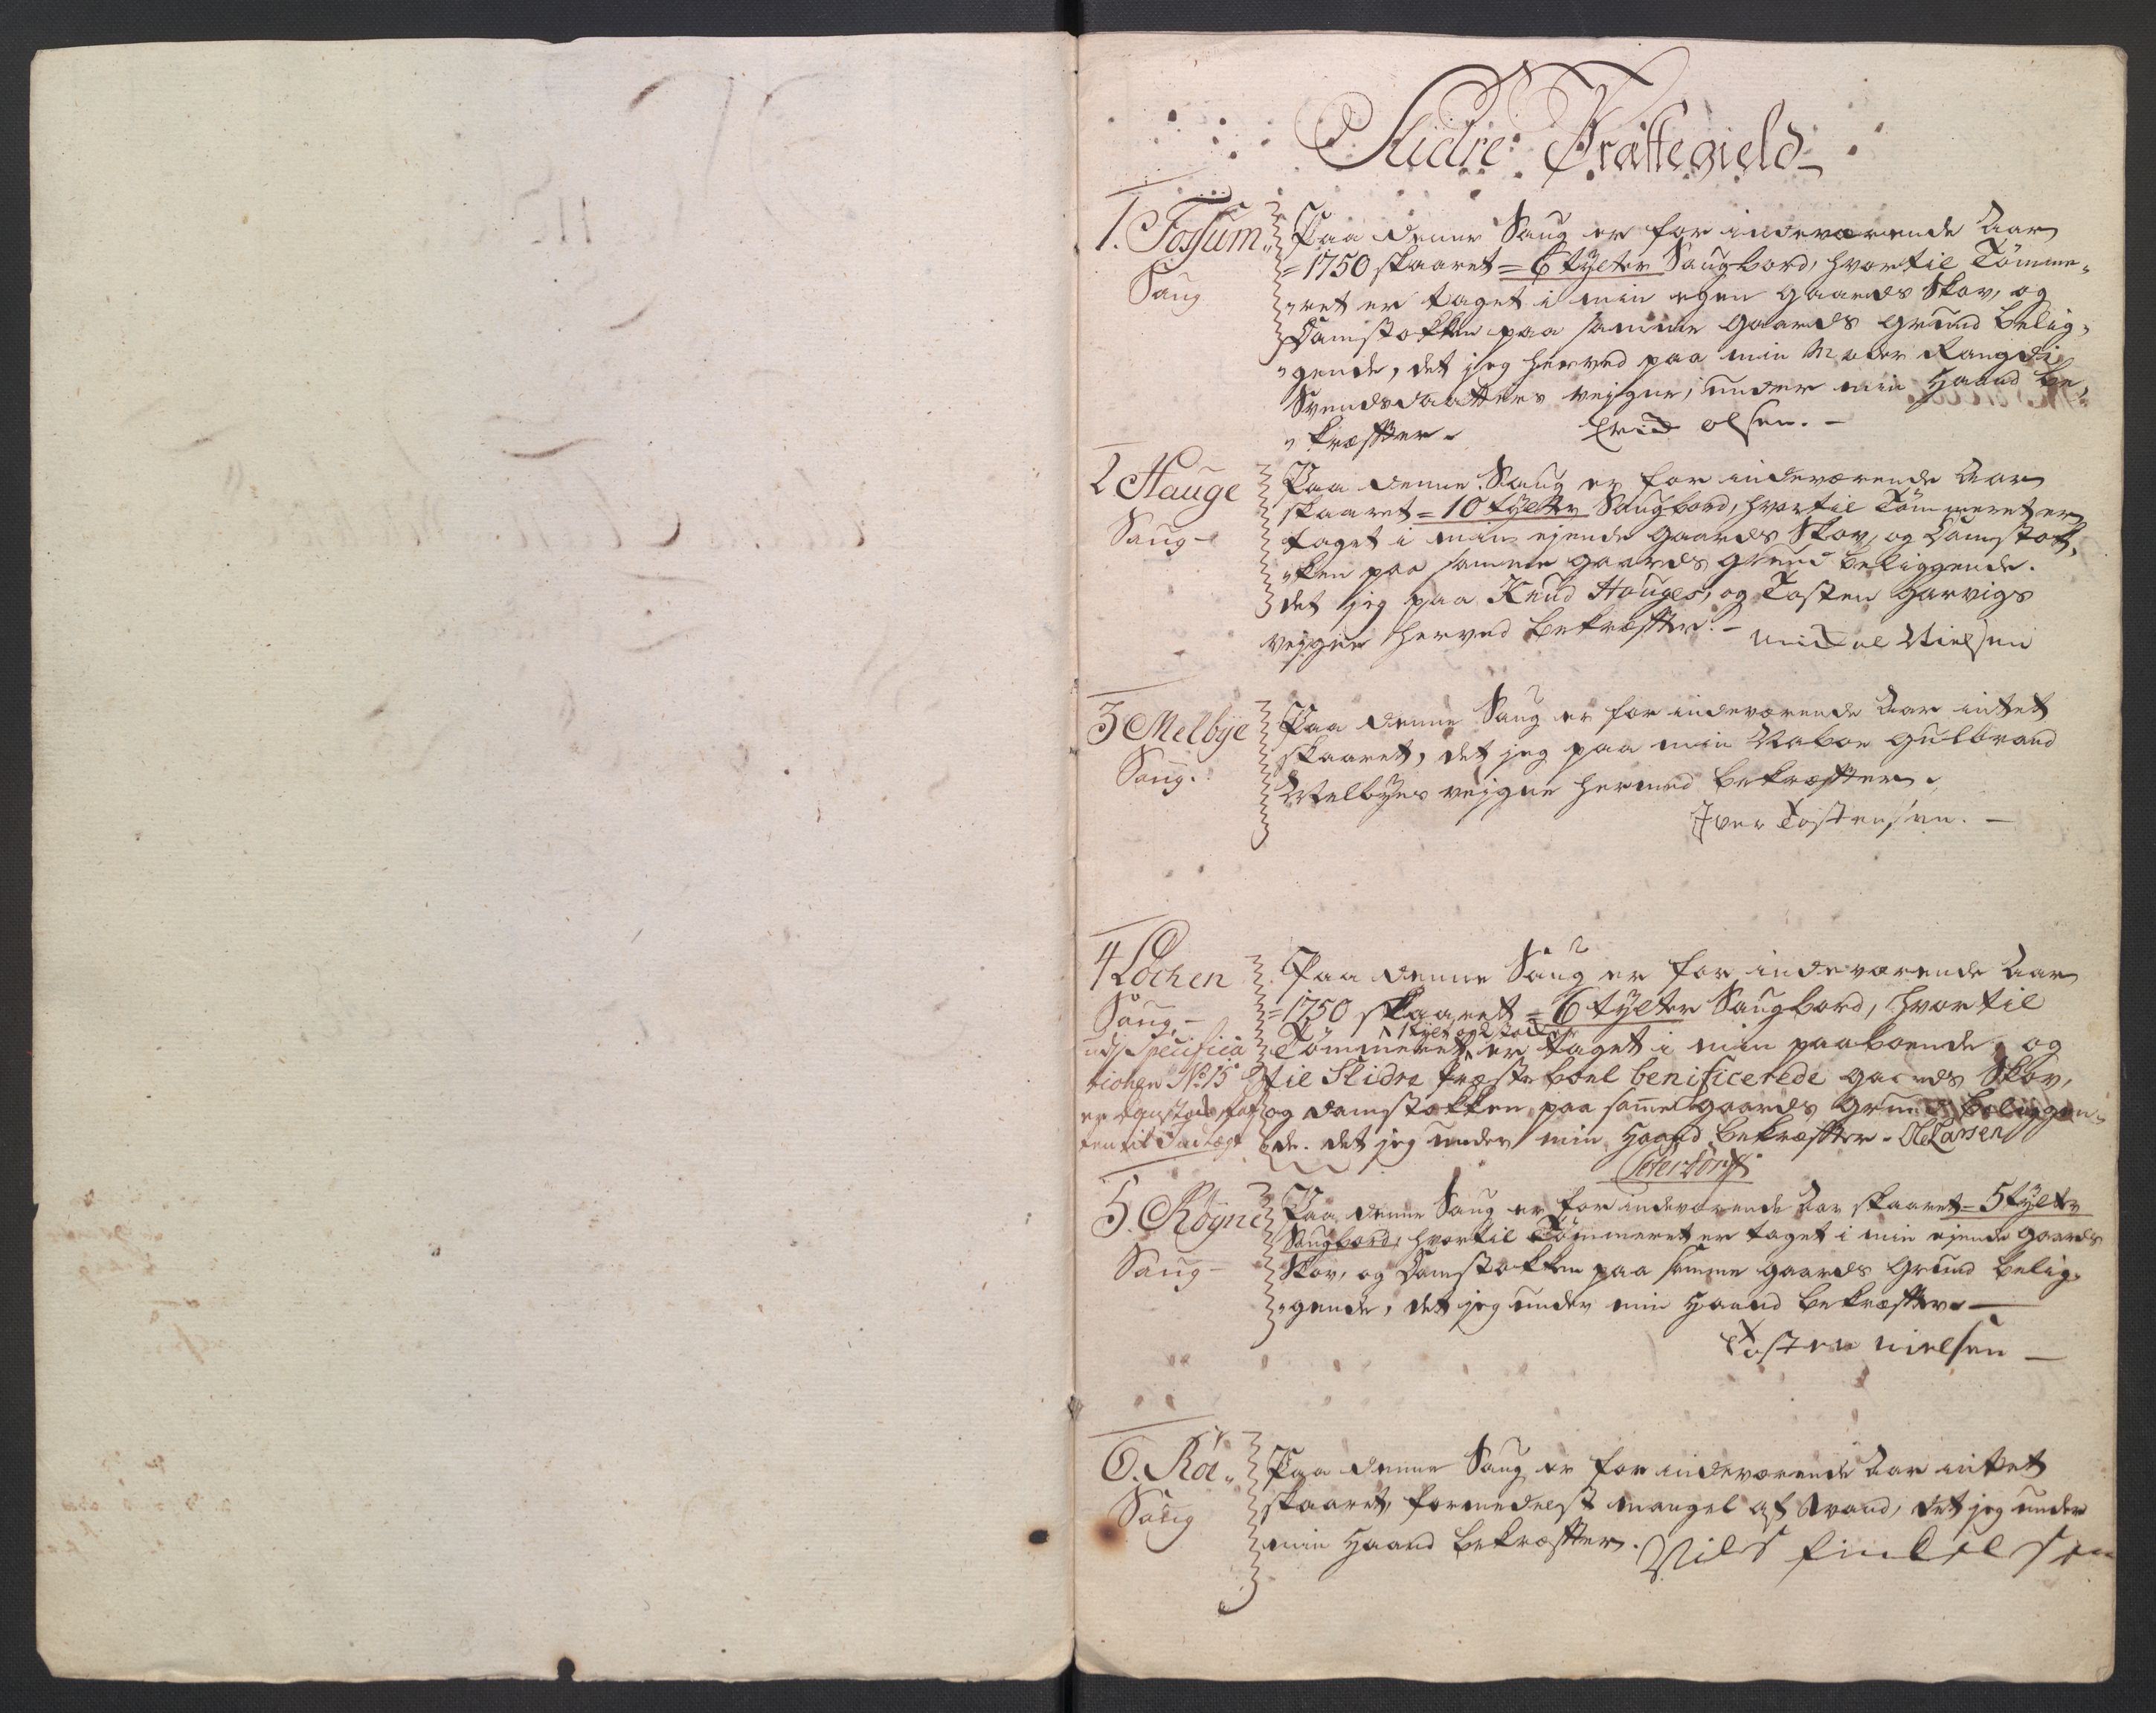 Slidre Præstegield
1. Fossum
Saug
Paa denne Saug er for indeværende Aar
= 1750 skaaret = 6 tylter Saugbord, hvortil Tømme-
ret er taget i min egen gaards Skov, og
Damstokken paa samme gaards grund belig-
gende, det jeg herved paa min Moder Rangdi
Svendsdaatters vejgne, under min Haand be-
kræfter. Erich Olsen.
2 Hauge
Saug
Paa denne Saug er for indeværende Aar
skaaret = 10 tylter Saugbord, hvortil Tømmeret er
taget i min ejende gaards Skov, og Damstok-
ken paa samme gaards grund beliggende.
det jeg paa Knud Hauges, og Tosten Garvigs
vejgne herved bekræfter. Michel Nielsen
3 Melbye
Saug.
Paa denne Saug er for indeværende Aar intet
skaaret, det jeg paa min Naboe Gulbrand
Melbyes vejgne hermed bekræfter.
Iver Tostensen.
4 Lochen
Saug
Paa denne Saug er for indeværende Aar
= 1750 skaaret = 6 tylter Saugbord, hvortil
1 tylt
Tømmeret er taget i min paaboende, og
til Slidre Præsteboel benificerede gaards Skov,
og damstokken paa samme gaards grund beliggen-
de. det jeg under min Haand bekræfter. Ole Larsen
Specifica
tionen No 15
5. Røyne
Saug
Paa denne Saug er for indeværende Aar skaaret = 5 tylter
Saugbord, hvortil Tømmeret er taget i min ejende gaards
Skov, og Damstokken paa samme gaards Grund belig-
gende, det jeg under min Haand bekræfter
Tosten Nielsen
6. Røi
Saug
Paa denne Saug er for indeværende Aar intet
skaaret, formedelst mangel af Vand, det jeg under
min Haand bekræfter. Nils Finkelsen